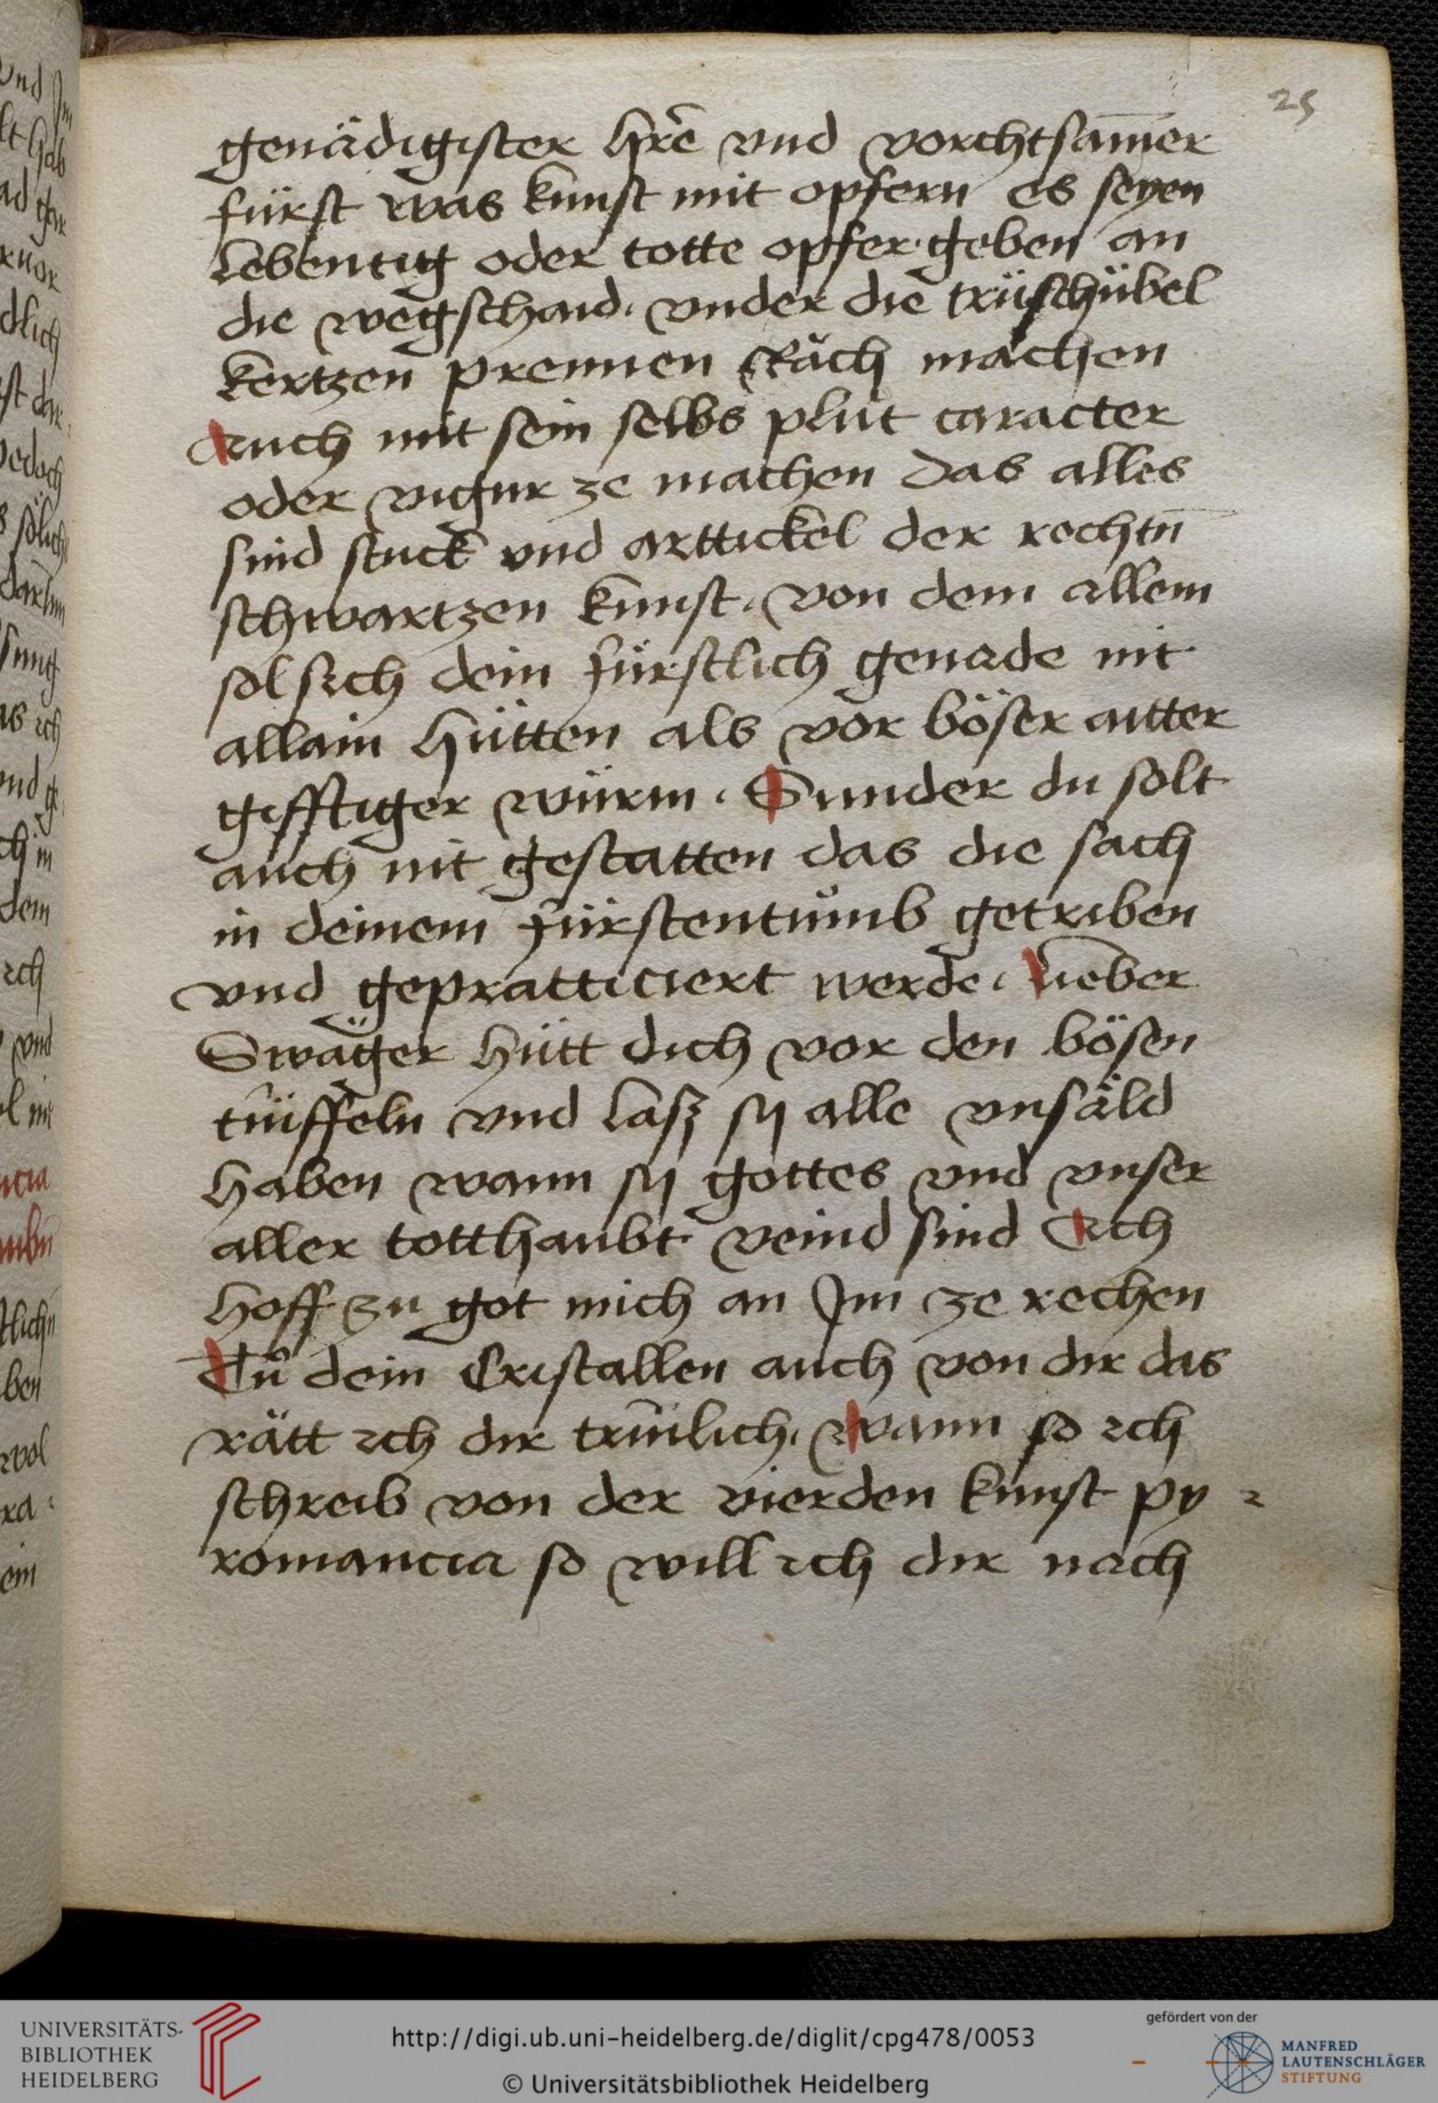 25
genädigister hrē vnd vorchtsāmer
fürst was kunst mit opfern es seyen
lebentig oder totte opfer geben an
die wegschaid. vnder die trüschübel
kertzen prennen Räch machen
Auch mit sein selbs plůt caracter
oder vigur ze machen Das alles
sind stuck vnd arttickel der rechtn̄
schwartzen kunst. von dem allem
sol sich dein fürstlich genade nit
allain hütten als vor böser aitter
gifftiger würm. Sunder du solt
auch nit gestatten das die sach
in deinem fürstentůmb getriben
vnd gepratticiert werde. lieber
Swäger hütt dich vor den bösen
tüiffeln vnd lasz sy alle vnsäld
haben wann sy gottes vnd vnser
aller totthaubt veind sind Ich
hoff zu got mich an Im ze rechen
Tů dein Cristallen auch von dir das
rätt ich dir trüilich. wann so ich
schreib von der vierden kunst py
romancia so will ich dir nach
UNIVERSITÄTS-
BIBLIOTHEK
HEIDELBERG
http://digi.ub.uni-heidelberg.de/diglit/cpg478/0053
© Universitätsbibliothek Heidelberg
gefördert von der
MANFRED
LAUTENSCHLÄGER
STIFTUNG